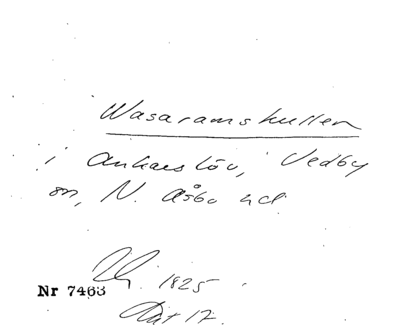 Wasaramskullen
i Ankarslöv, Vedby
sn, N. Åsbo hd
1825
Nr 7463
Rät 17.